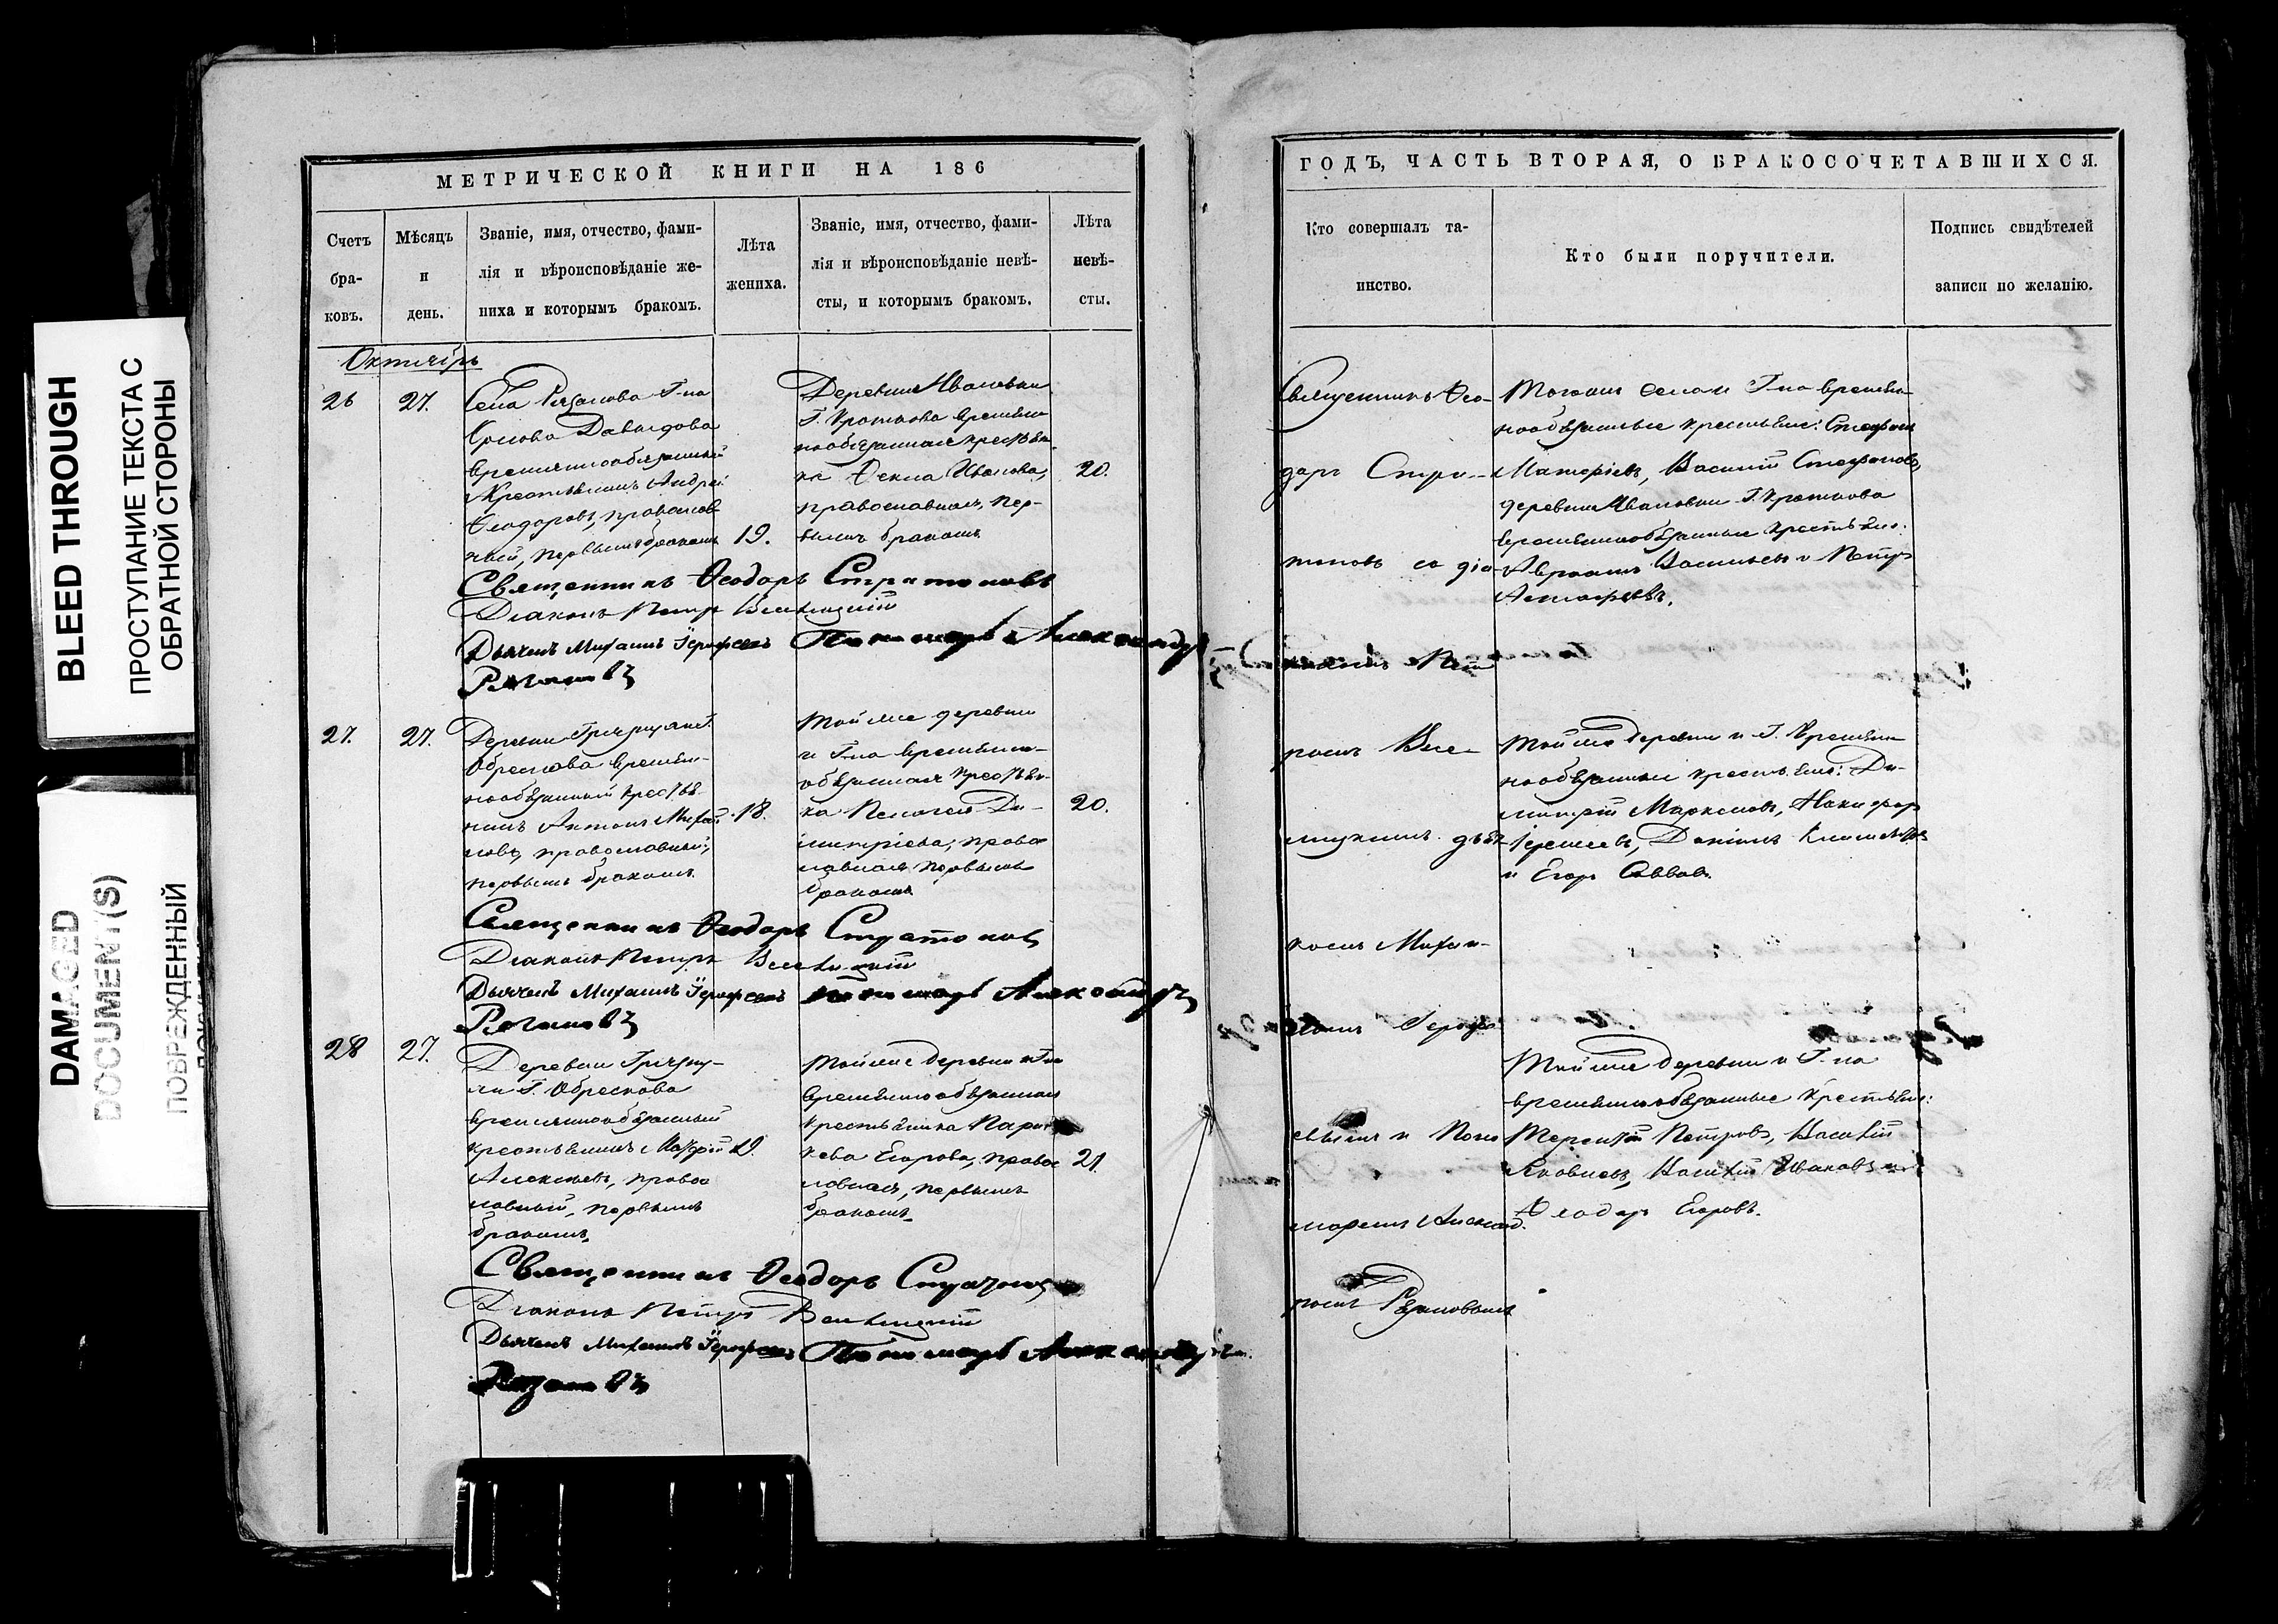 BLEED THROUGH
ПРОСТУПАНИЕ ТЕКСТА С
ОБРАТНОЙ СТОРОНЫ
DAMAGED
DOCUMENT(S)
ПОВРЕЖДЕННЫЙ
МЕТРИЧЕСКОЙ КНИГИ НА 186
Счетъ
бра-
ковъ.
Мѣсяцъ
и
день.
Званіе, имя, отчество, фами-
лія и вѣроисповѣданіе же-
ниха и которымъ бракомъ.
Лѣта
жениха.
Званіе, имя, отчество, фами-
лія и вѣроисповѣданіе невѣ-
сты, и которымъ бракомъ.
Лѣта
невѣ-
сты.
Октябрь
26
27.
Села Рязанова Г-на
Давыдова
временнообязанный
Крестьянинъ Андрей
Ѳеодоровъ, православ
ный, первымъ бракомъ
19.
Деревни Ивановки
Г. Кроткова времен
нообязанная крестьян-
ка Ѳекла Иванова,
православная, пер-
вымъ бракомъ
20.
Священникъ Ѳеодоръ Стратоновъ
Діаконъ Петръ
Дьячекъ Михаилъ Іерофеевъ Пономарь Александръ
Рязановъ
27.
27.
Деревни
Обрескова времен-
нообязанный кресть-
нинъ Антонъ Михай
ловъ, православный,
первымъ бракомъ.
18.
Той же деревни
и Г-на временно-
обязанная крестьян-
ка Пелагея Ди-
митріева, правос
лавная первымъ
бракомъ
20.
Священникъ Ѳеодоръ Стратоновъ
Діаконъ Петръ
Дьячекъ Михаилъ Іерофеевъ Пономарь Александръ
Рязановъ
28
27.
Деревни
Г. Обрескова
временнообязанный
крестьянинъ
Алексѣевъ, правос
лавный, первымъ
бракомъ.
19.
Той же деревни и Г-на
временнообязанная
крестьянка Парас
кева Егорова, правос
лавная, первымъ
бракомъ.
21.
Священникъ Ѳеодоръ Стратоновъ
Діаконъ Петръ
Дьячекъ Михаилъ Іерофеевъ Пономарь Александръ
Рязановъ
ГОДЪ, ЧАСТЬ ВТОРАЯ, О БРАКОСОЧЕТАВШИХСЯ.
Кто совершалъ та-
инство.
Кто были поручители.
Подпись свидѣтелей
записи по желанію.
Священникъ Ѳео-
доръ Стра-
тоновъ со діа-
кономъ Пет
ромъ
дьяч-
комъ Миха-
иломъ Іерофе
евымъ и Поно
маремъ Александ.
ромъ Рязановымъ
Того же села и Г-на времен-
нообязанные крестьяне: Стефанъ
Матфіевъ, Василій Стефановъ,
деревни Ивановки Г. Кроткова
временнообязанные крестьяне:
Авраамъ Васильевъ и Петръ
Той же деревни и Г. времен
нообязанные крестьяне: Ди-
митрій Маркеловъ, Никифоръ
Еремеевъ, Даніилъ
и Егоръ Саввовъ.
Той же деревни и Г-на
временнообязанные крестьяне:
Терентій Петровъ, Василій
Яковлевъ, Василій Ивановъ и
Ѳеодоръ Егоровъ.